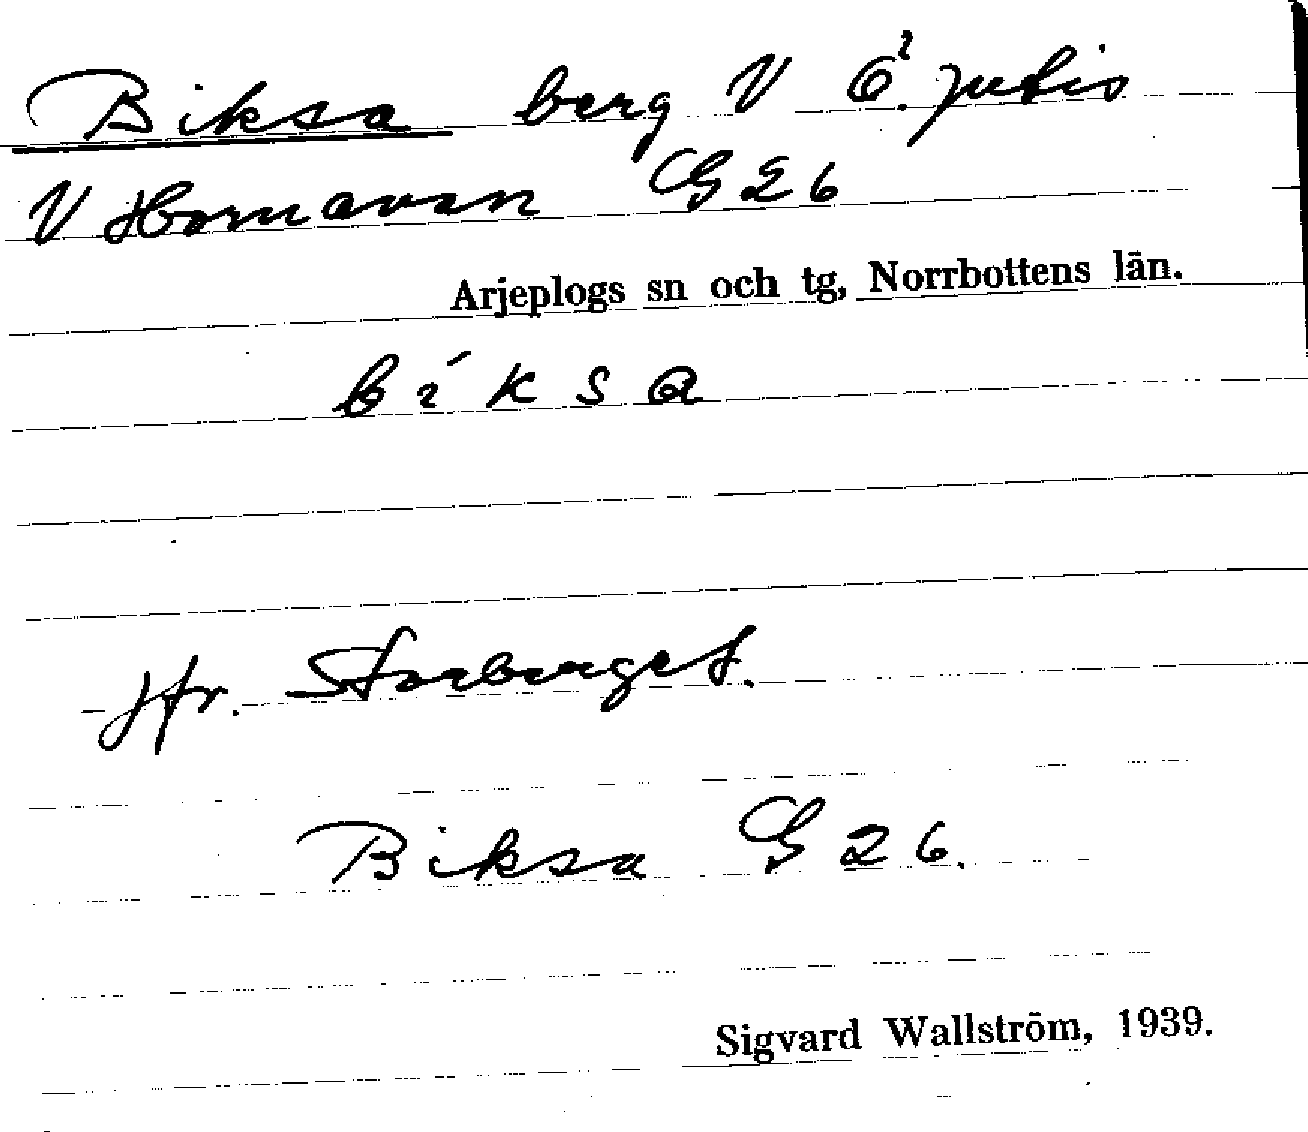 Biksa berg V Ö. Jutis
V Hornavan G 26
Arjeplogs sn och tg, Norrbottens län.
bíksa
Jfr. Storberget.
Biksa G 26.
Sigvard Wallström, 1939.